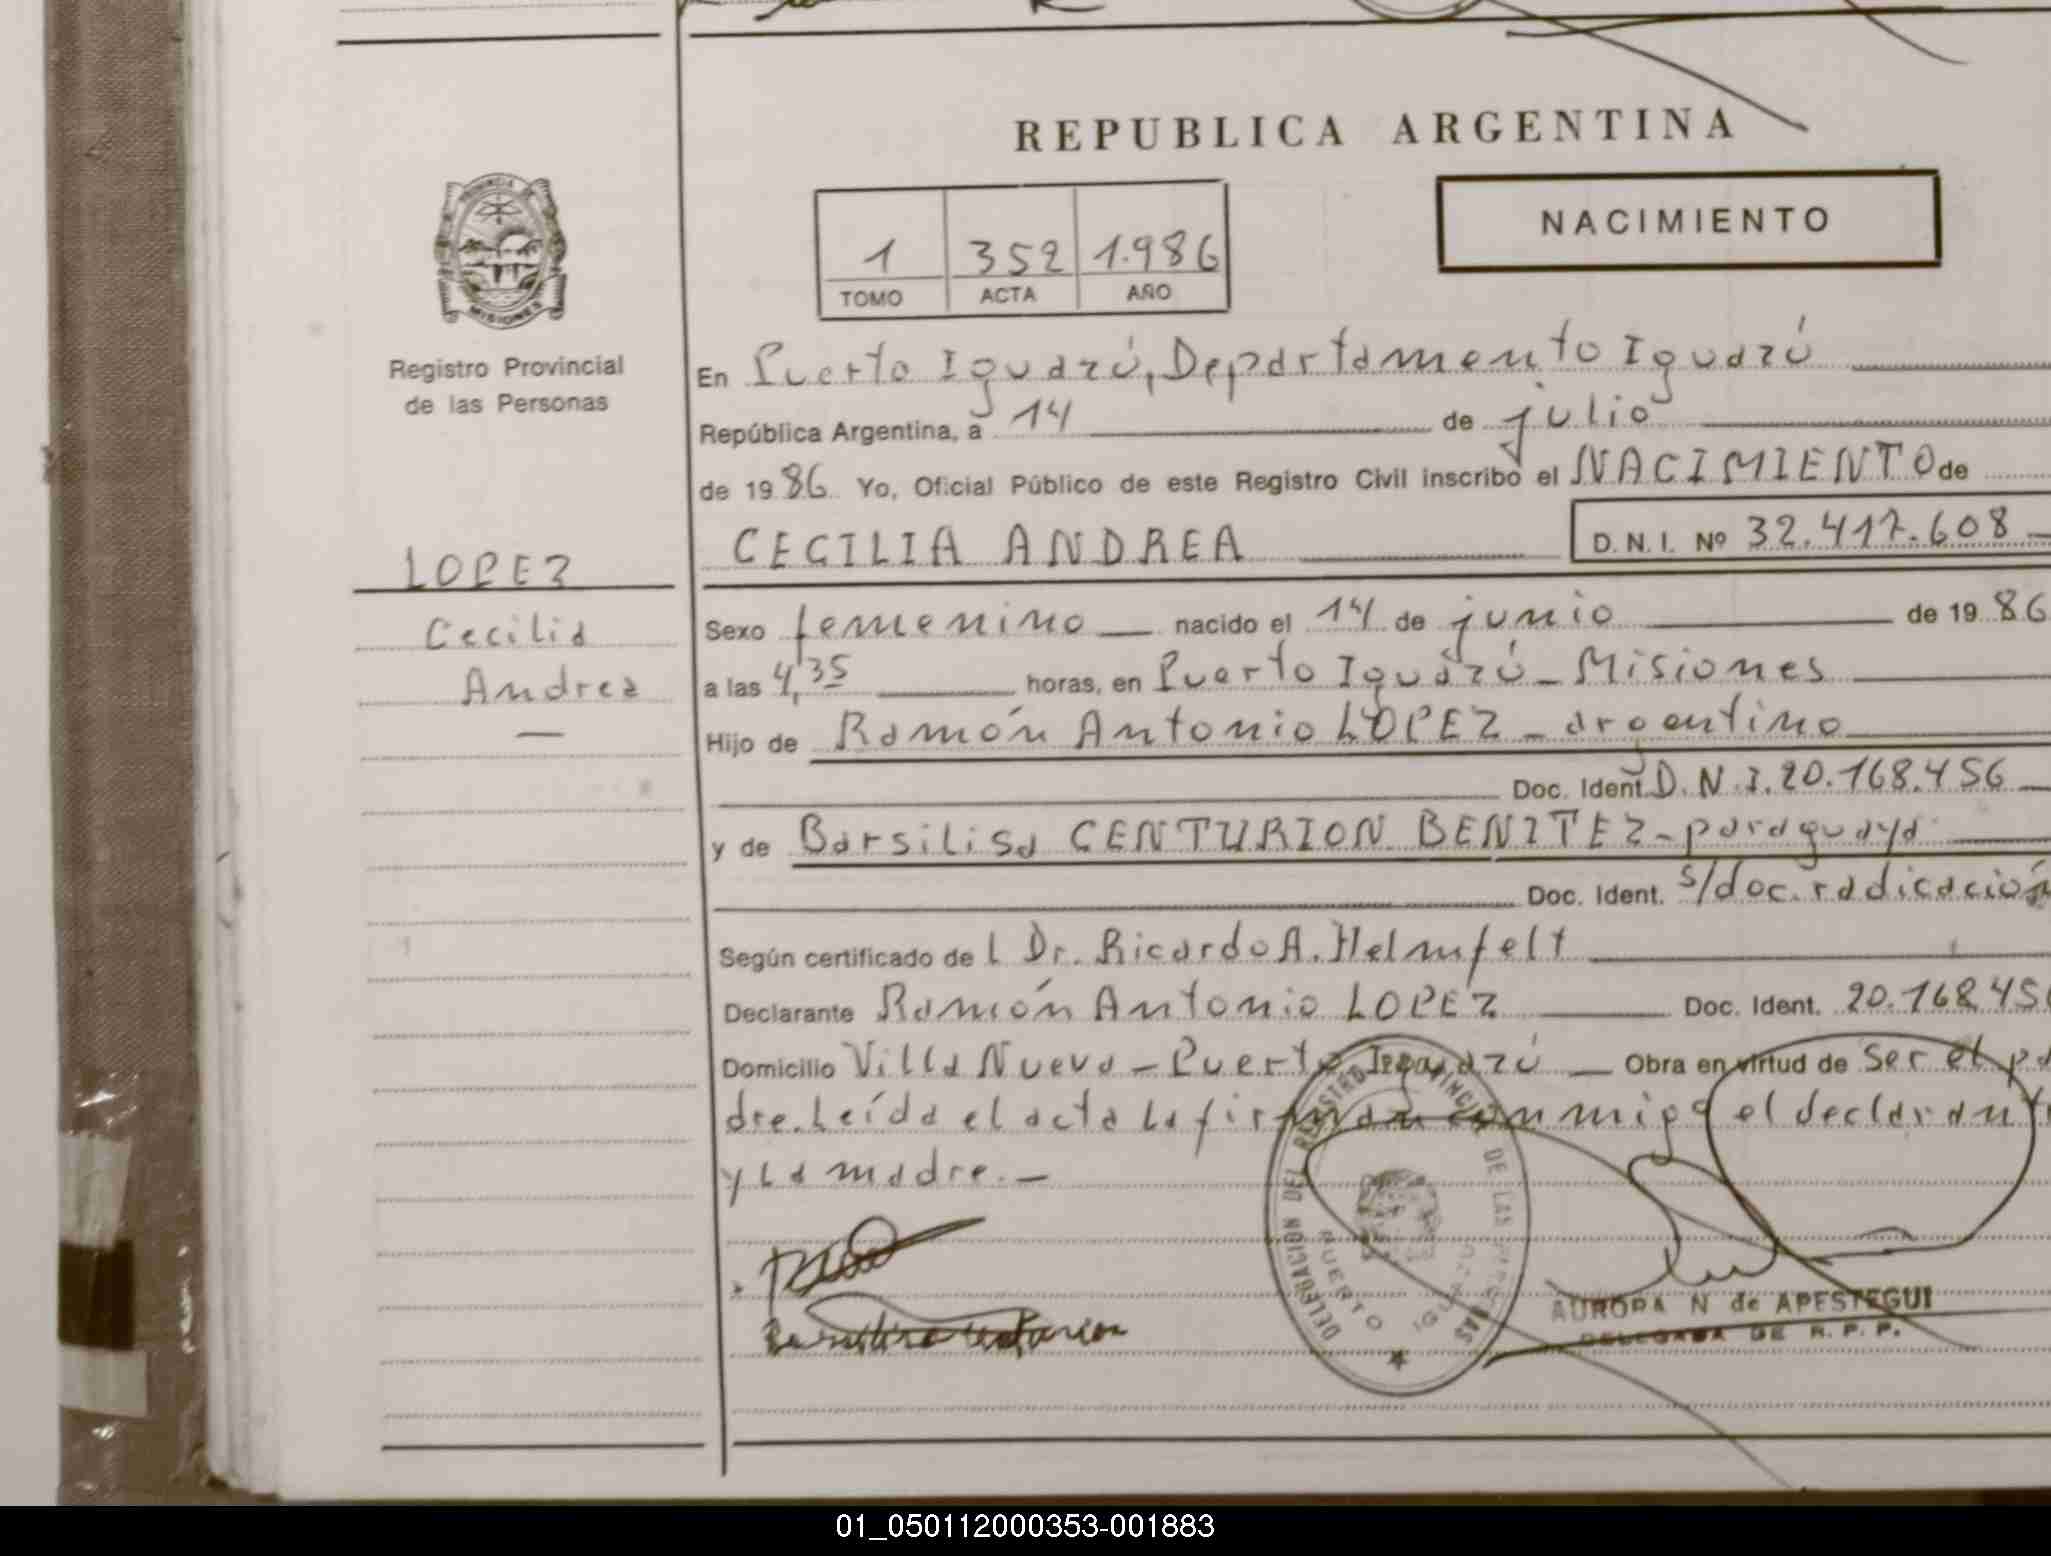 REPUBLICA ARGENTINA
NACIMIENTO
1 352 1.986
TOMO ACTA AÑO
PROVINCIA DE
MISIONES
Registro Provincial
de las Personas
LOPEZ
Cecilia
Andrea
—
En Puerto Iguazú, Departamento Iguazú
República Argentina, a 14 de julio
de 1986 Yo, Oficial Público de este Registro Civil inscribo el NACIMIENTO de
CECILIA ANDREA D.N.I. Nº 32.417.608
Sexo femenino nacido el 14 de junio de 1986
a las 4,35 horas, en Puerto Iguazú - Misiones
Hijo de Ramón Antonio LOPEZ - argentino
Doc. Ident. D.N.I. 20.168.456
y de Barsilisa CENTURION BENITEZ - paraguaya
Doc. Ident. s/doc. radicación
Según certificado del Dr. Ricardo A. Helmfelt
Declarante Ramón Antonio LOPEZ Doc. Ident. 20.168.456
Domicilio Villa Nueva - Puerto Iguazú Obra en virtud de ser el pa
dre. Leída el acta la firman conmigo el declarante
y la madre. -
DELEGACION DEL REGISTRO PROVINCIAL DE LAS PERSONAS
PUERTO IGUAZU
AURORA N de APESTEGUI
DELEGADA DE R. P. P.
01_050112000353-001883